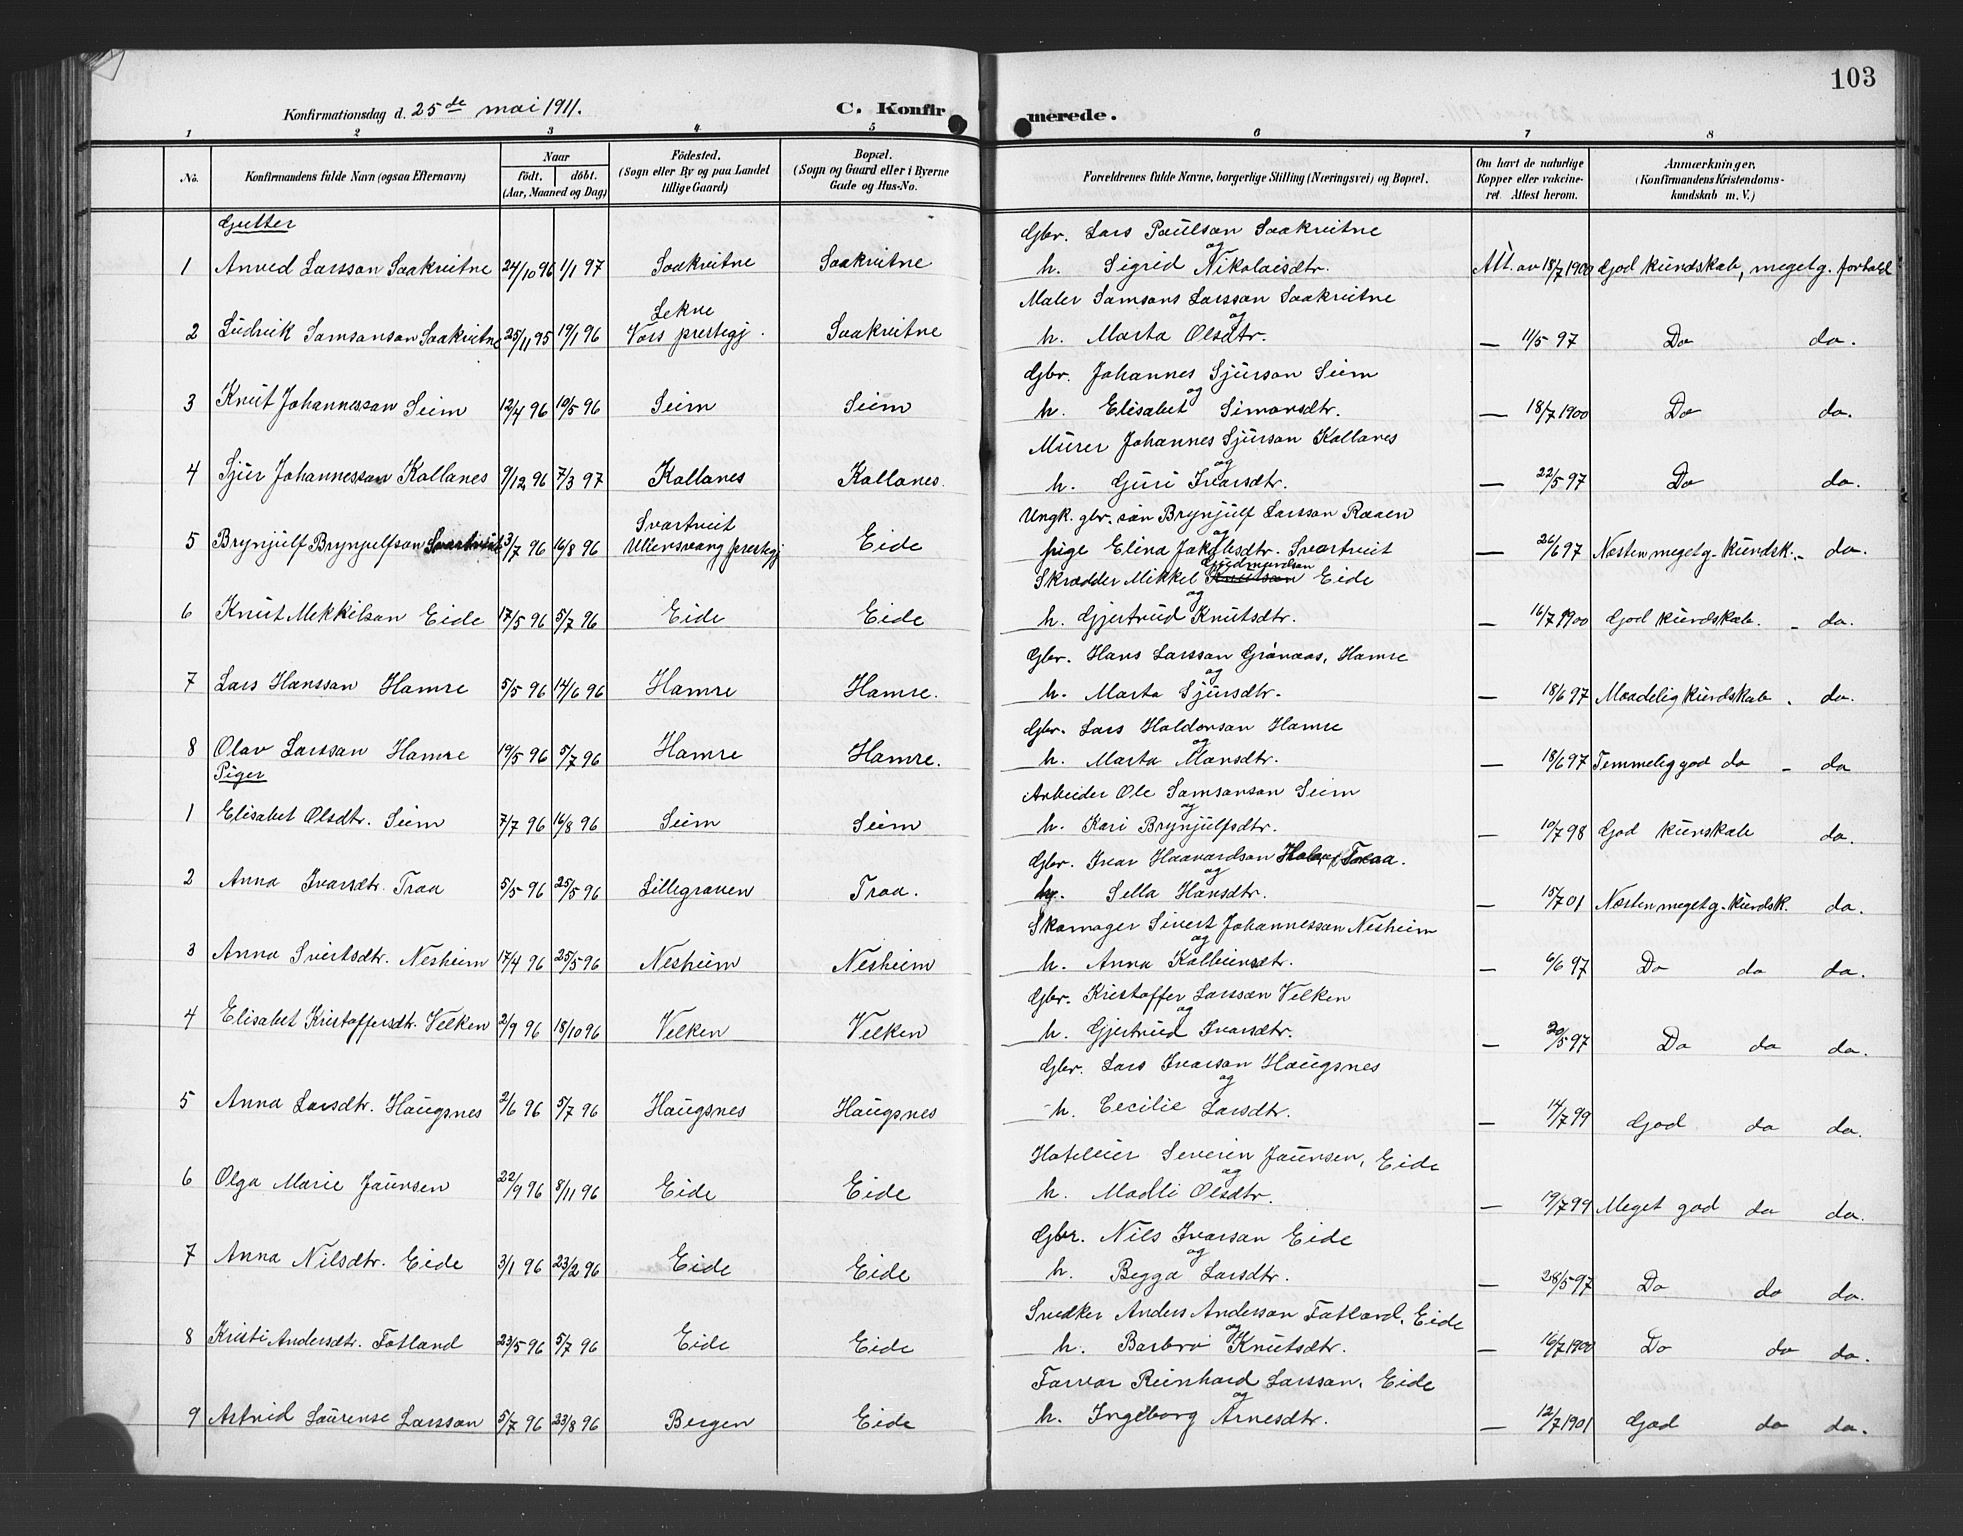 103
Konfirmationsdag d. 25de mai 1911.
C. Konfirmerede.
1 2 3 4 5 6 7 8
No. Konfirmandens fulde Navn (ogsaa Efternavn) Naar födt. döbt. (Aar, Maaned og Dag) Födested. (Sogn eller By og paa Landet tillige Gaard) Bopæl. (Sogn og Gaard eller i Byerne Gade og Hus-No. Forældrenes fulde Navne, borgerlige Stilling (Næringsvei) og Bopæl. Om havt de naturlige Kopper eller vakcineret Attest herom. Anmærkninger. (Konfirmandens Kristendomskundskab m. V.)
Gutter
Gbr. Lars Paulson Saakvitne
og
1 Anved Larsson Saakvitne 24/10 96 1/1 97 Saakvitne Saakvitne h. Sigrid Nikolaisdtr. Att. av 18/7 1900 God kundskab, meget g. forhold
Maler Samsons Larsson Saakvitne
og
2 Ludvik Samsonson Saakvitne 25/11 95 19/1 96 Lekne Vors prestegj. Saakvitne h. Marta Olsdtr. — 11/5 97 Do do.
Gbr. Johannes Sjurson Seim
og
3 Knut Johannesson Seim 12/4 96 10/5 96 Seim Seim h. Elisabet Simonsdtr. — 18/7 1900 Do do.
Murer Johannes Sjurson Kollanes
og
4 Sjur Johannesson Kollanes 9/12 96 7/3 97 Kollanes Kollanes. h. Guri Ivarsdtr. — 22/5 97 Do do.
Ungk. gbr. søn Brynjulf Larsson Raaen
og
5 Brynjulf Brynjulfson Svartveit 3/7 96 16/8 96 Svartveit Ullensvang prestegj Eide pige Elina Jakobsdtr. Svartveit — 26/6 97 Næsten meget g. kundsk. - do.
Skrædder Mikkel Knutson Gudmundson Eide
og
6 Knut Mekkilson Eide 17/5 96 5/7 96 Eide Eide h. Gjertrud Knutsdtr. — 16/7 1900 God kundskab. - do.
Gbr. Hans Larsson Grönaas, Hamre
og
7 Lars Hansson Hamre 5/5 96 14/6 96 Hamre Hamre. h. Marta Sjursdtr. — 18/6 97 Maadelig kundskab. do.
Gbr. Lars Haldorson Hamre
og
8 Olav Larsson Hamre 19/5 96 5/7 96 Hamre Hamre. h. Marta Monsdtr. — 18/6 97 Temmelig god do - do
Piger
Arbeider Ole Samsonson Seim
og
1 Elisabet Olsdtr. Seim 7/7 96 16/8 96 Seim Seim h. Kari Brynjulfsdtr. — 10/7 98 God kunskab do
Gbr. Ivar Haavardson Traa.
og
2 Anna Ivarsdtr. Traa 5/5 96 25/5 96 Lillegraven Traa. h. Sella Hansdtr. — 15/7 01 Næsten meget g. kundsk. do.
Skomager Sivert Johannesson Nesheim
og
3 Anna Sivertsdtr. Nesheim 17/4 96 25/5 96 Nesheim Nesheim h. Anna Kolbeinsdtr. — 6/6 97 Do do do.
Gbr. Kristoffer Larsson Velken
og
4 Elisabet Kristoffersdtr. Velken 2/9 96 18/10 96 Velken Velken h. Gjertrud Ivarsdtr. — 20/5 97 Do do do.
Gbr. Lars Ivarson Haugsnes
og
5 Anna Larsdtr. Haugsnes 2/6 96 5/7 96 Haugsnes Haugsnes h. Cecilie Larsdtr. — 14/7 99 God do do.
Hoteleier Severin Jaunsen, Eide
og
6 Olga Marie Jaunsen 22/9 96 8/11 96 Eide Eide h. Madli Olsdtr. — 19/7 99 Meget god do do.
Gbr. Nils Ivarson Eide
og
7 Anna Nilsdtr. Eide 3/1 96 23/2 96 Eide Eide h. Begga Larsdtr. — 28/5 97 Do do do.
Snedker Anders Anderson Fatland, Eide
og
8 Kristi Andersdtr. Fotland 23/5 96 5/7 96 Eide Eide h. Barbro Knutsdtr. — 16/7 1900 Do do do.
Farvar Reinhard Larsson, Eide
og
9 Astrid Laurense Larsson 5/7 96 23/8 96 Bergen Eide h. Ingeborg Arnesdtr. — 12/7 1901 God do do.